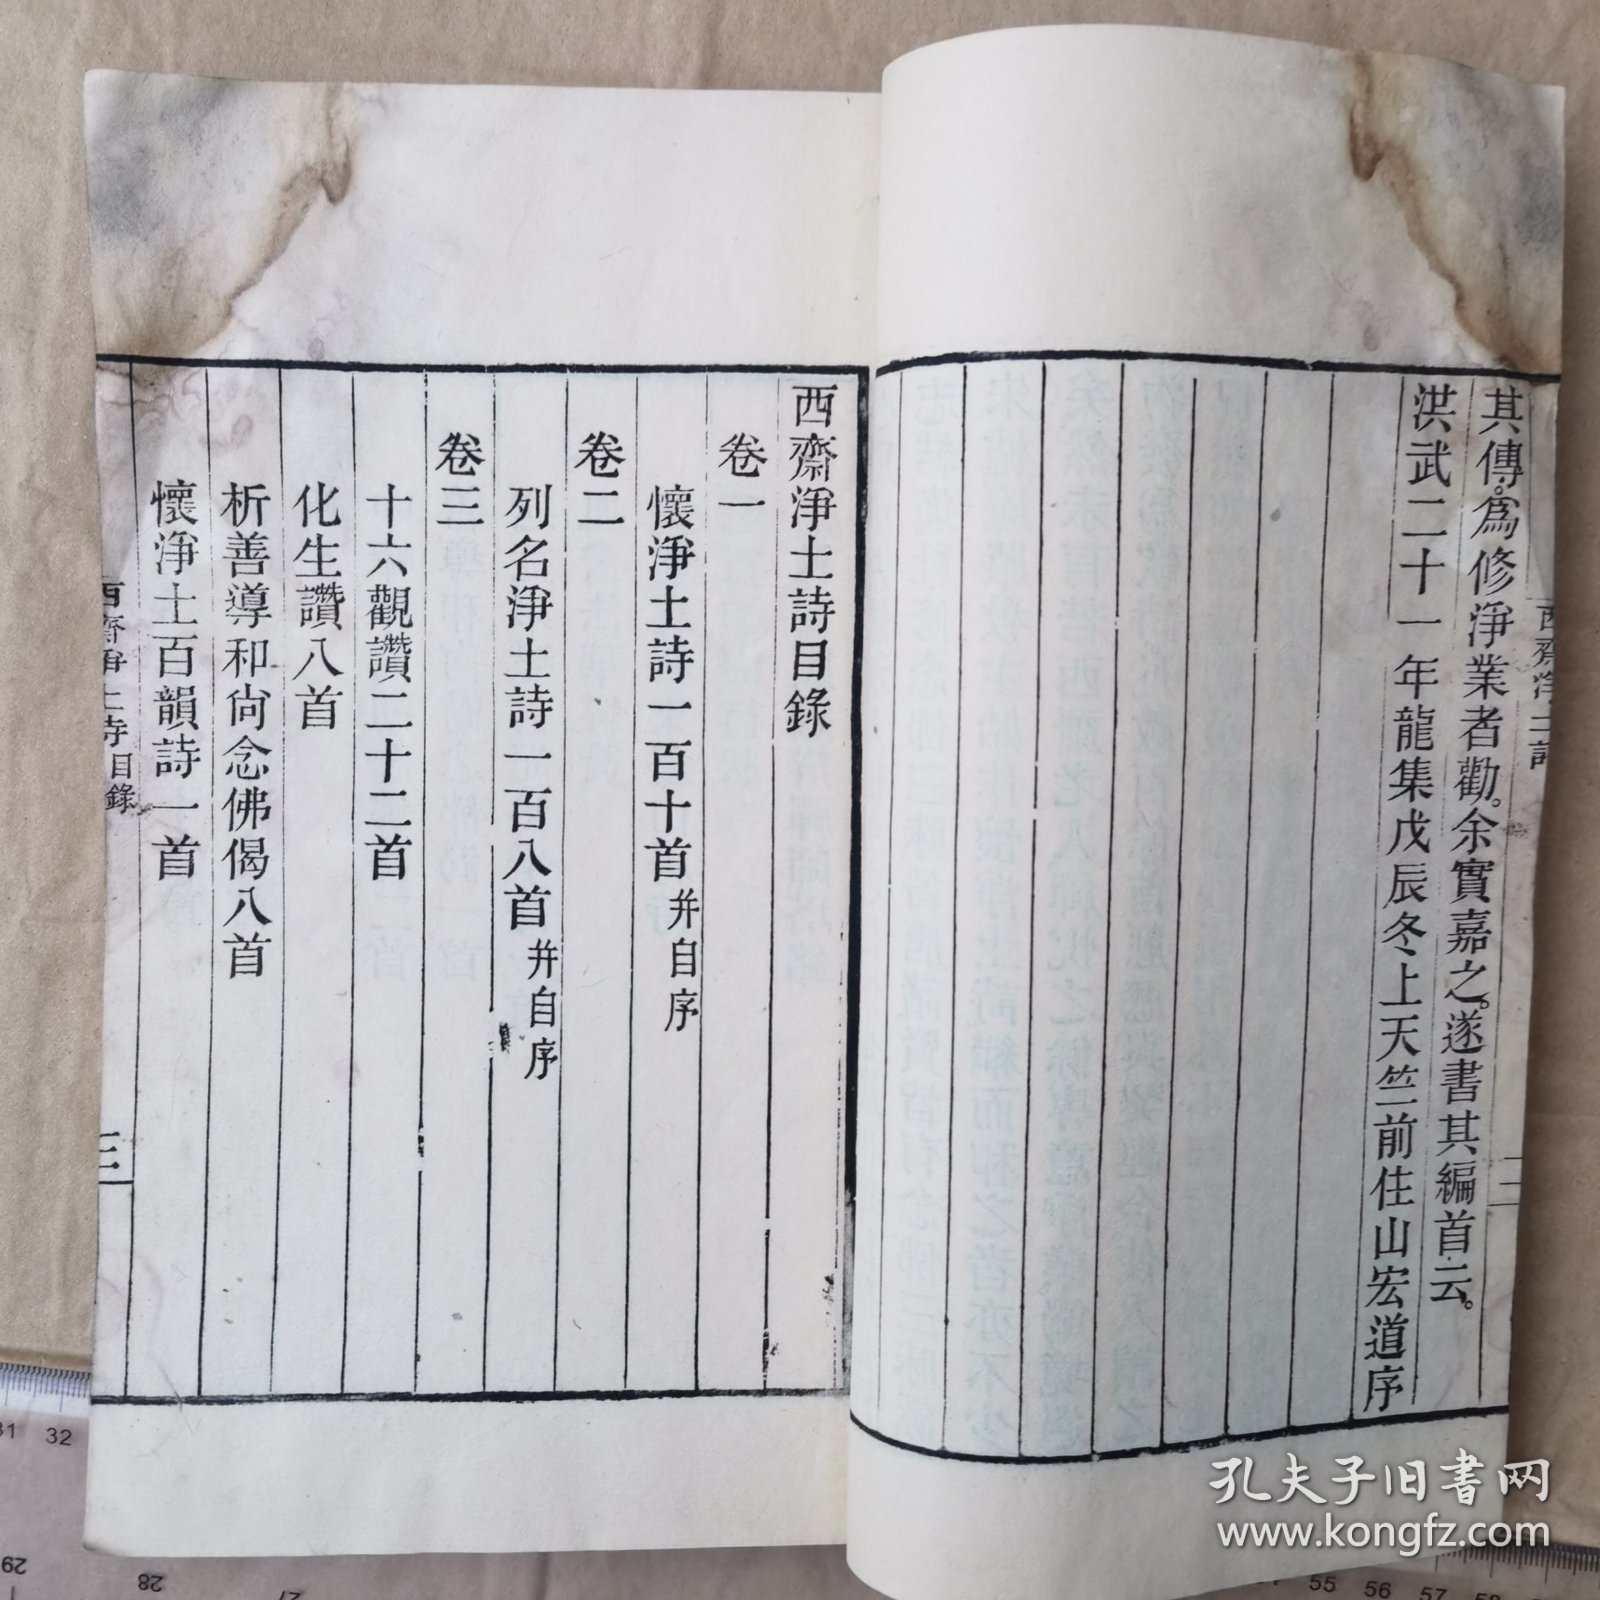 其傳。爲修淨業者勸。余實嘉之。遂書其編首云。
洪武二十一年龍集戊辰冬上天竺前住山宏道序
西齋淨土詩
二
西齋淨土詩目錄
卷一
懷淨土詩一百十首 并自序
卷二
列名淨土詩一百八首 并自序
卷三
十六觀讚二十二首
化生讚八首
析善導和尙念佛偈八首
懷淨土百韻詩一首
西齋淨土詩目錄
三
孔夫子旧书网
www.kongfz.com
31 32
29 28 27
55 56 57 58